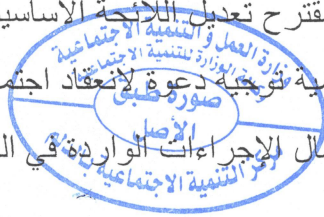 مقترح تعديل اللائحة الأساسية
توجيه دعوة لانعقاد اجتم
ال الإجراءات الواردة في ال
وزارة العمل و التنمية الاجتماعية
وكالة الوزارة للتنمية الاجتماعية
صورة طبق
الأصل
مركز التنمية الاجتماعية